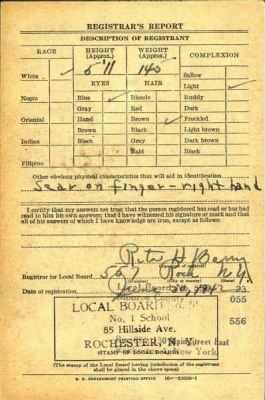 REGISTRAR'S REPORT
DESCRIPTION OF REGISTRANT
RACE HEIGHT (Approx.) WEIGHT (Approx.) COMPLEXION
White ✓ 5'11 145 Sallow
EYES HAIR Light ✓
Negro Blue ✓ Blonde Ruddy
Gray Red Dark
Oriental Hazel Brown ✓ Freckled
Brown Black Light brown
Indian Black Gray Dark brown
Bald Black
Filipino
Other obvious physical characteristics that will aid in identification
Scar on finger - right hand
I certify that my answers are true; that the person registered has read or has had
read to him his own answers; that I have witnessed his signature or mark and that
all of his answers of which I have knowledge are true, except as follows:
Registrar for Local Board 567 Roch N.Y.
1942
23
055
LOCAL BOARD
No. 1 School
556
85 Hillside Ave.
Street East
ROCHESTER, N. Y.
New York
(STAMP OF LOCAL BOARD)
(The stamp of the Local Board having jurisdiction of the registrant
shall be placed in the above space)
U. S. GOVERNMENT PRINTING OFFICE